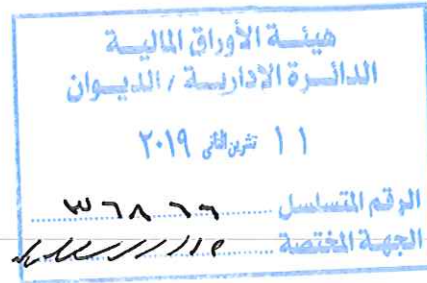 هيئــة الأوراق المالية
الدائــرة الاداريــة / الديــوان
١١ تشرين الثاني ٢٠١٩
الرقم المتسلسل
الجهة المختصة